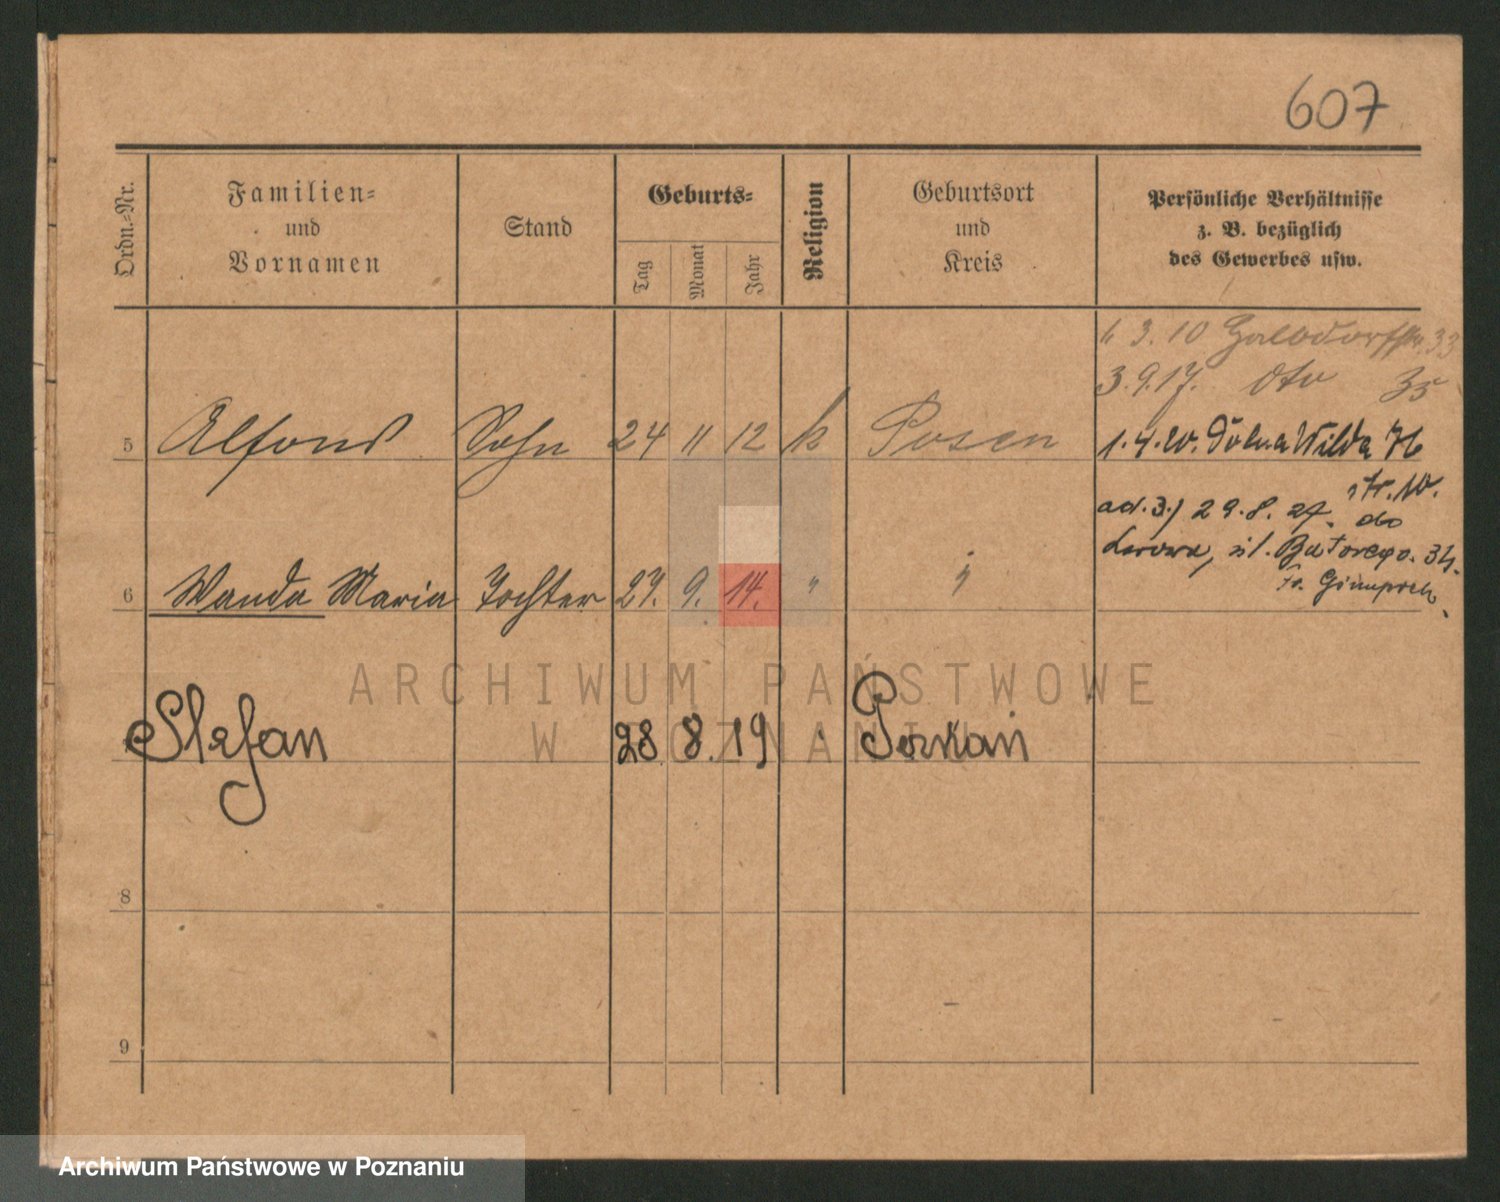 607
Ordn.-Nr.
Familien-
und
Vornamen
Stand
Geburts-
Tag
Monat
Jahr
Religion
Geburtsort
und
Kreis
Persönliche Verhältnisse
z. B. bezüglich
des Gewerbes usw.
3. 10
33
3.9.17. dto 35
5 Alfons Sohn 24 11 12 k Posen
1.4.20. Dolna Wilda 76
ad.3.) 29.8. 27. do
Lwowa, ul. Batorego. 34.
6 Wanda Maria Tochter 27. 9. 14. "
Stefan 28. 8. 19
8
9
ARCHIWUM PAŃSTWOWE
W POZNANIU
Archiwum Państwowe w Poznaniu